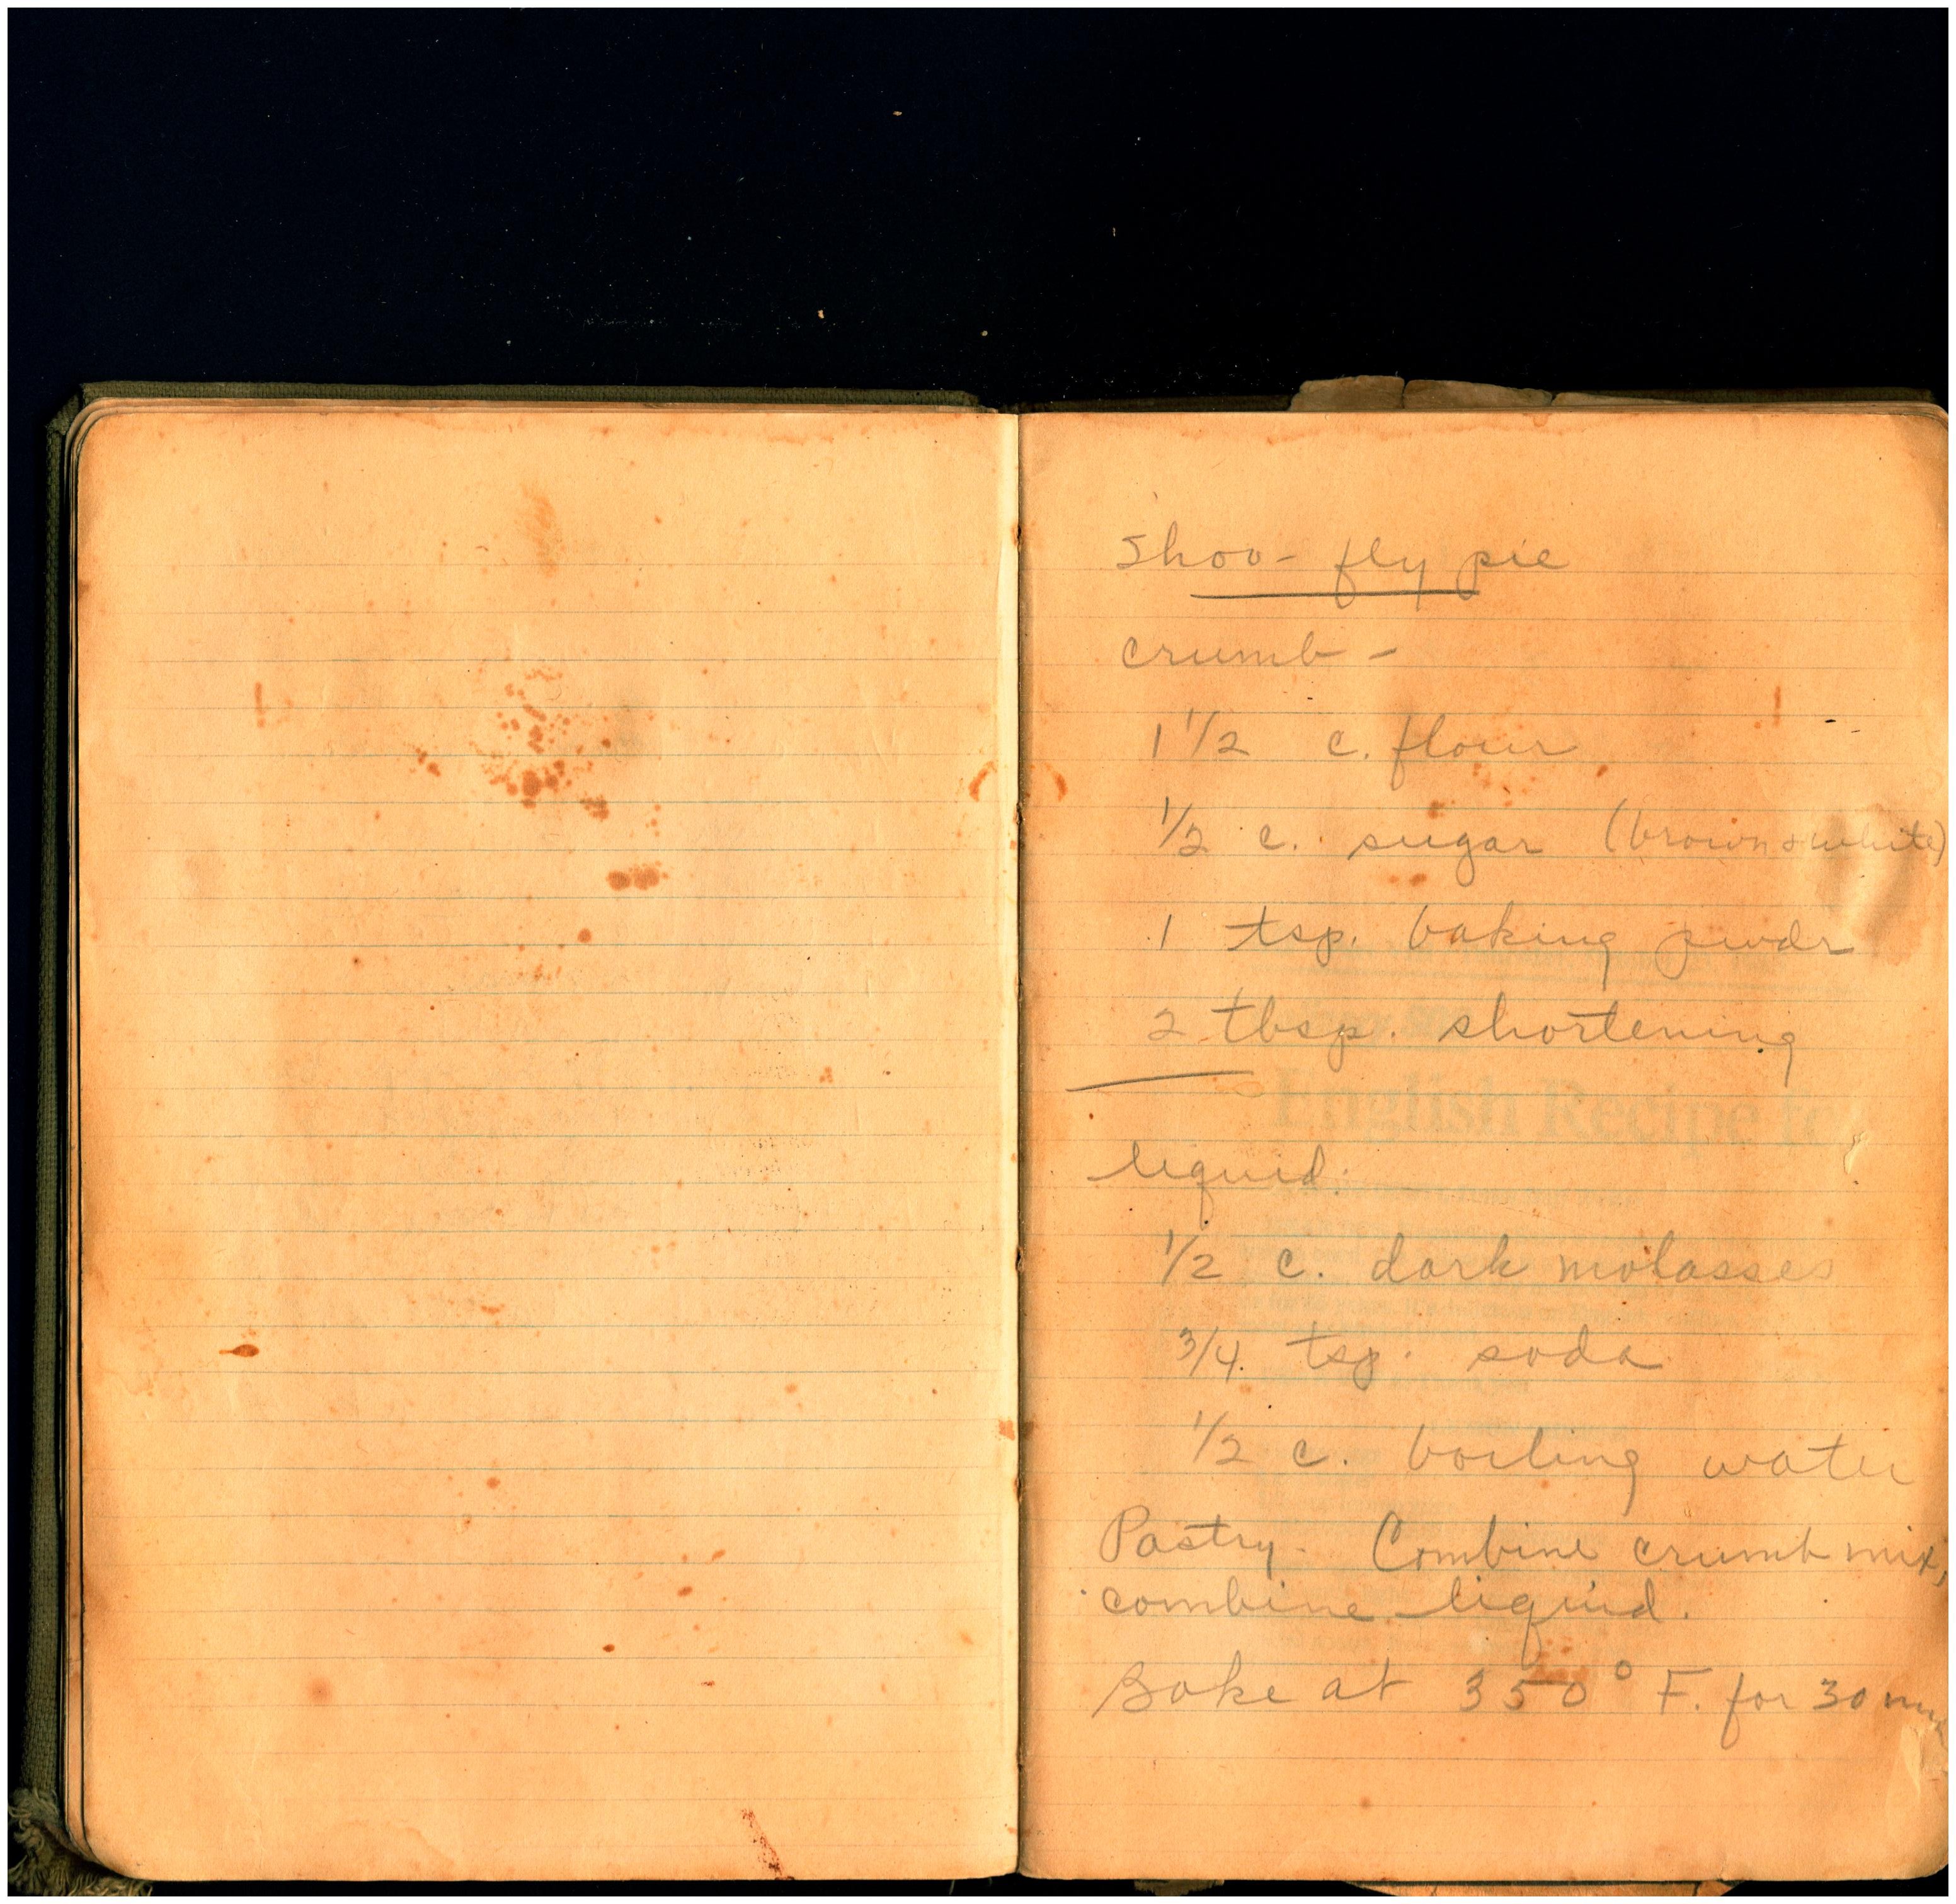 Shoo-fly pie
crumb -
1 1/2 c. flour
1/2 c. sugar (brown & white)
1 tsp. baking pwdr
2 tbsp. shortening
English Recipe
liquid.
1/2 c. dark molasses
3/4 tsp. soda
1/2 c. boiling water
Pastry - Combine crumb mix,
combine liquid.
Bake at 350° F. for 30 min